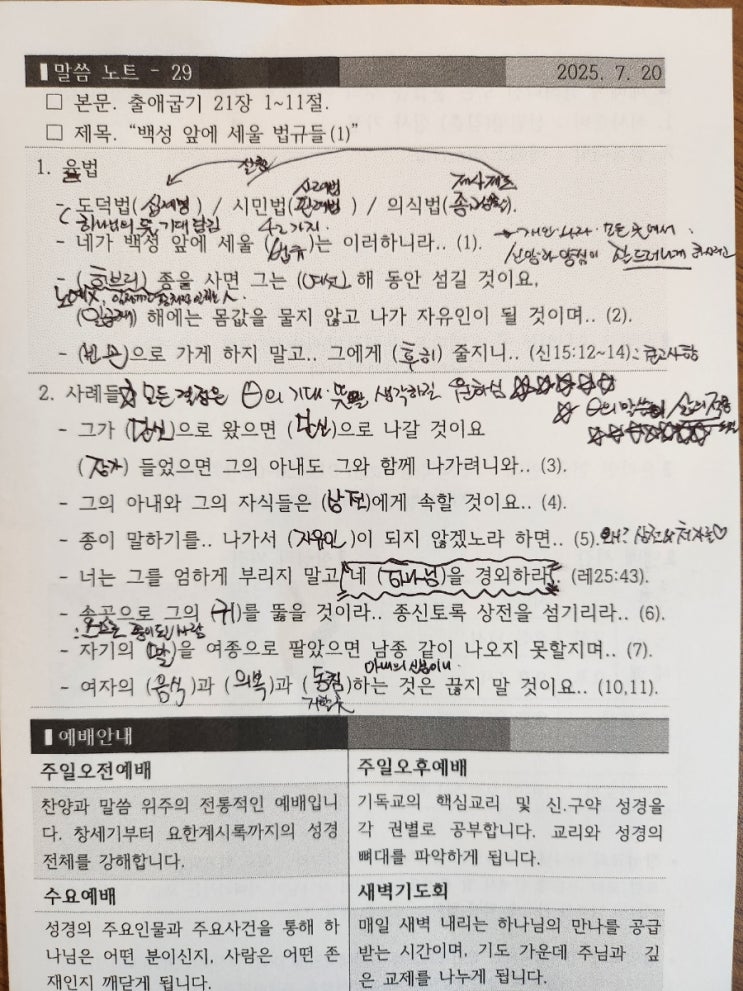 ▌말씀 노트 - 29 2025. 7. 20
□ 본문. 출애굽기 21장 1~11절.
□ 제목. “백성 앞에 세울 법규들(1)”
1. 율법
실천
사례법 제사제도
- 도덕법(십계명) / 시민법(판례법) / 의식법(종교생활).
하나님의 뜻, 기대 담김 42가지. 개인, 나라, 모든 곳에서
- 네가 백성 앞에 세울 (법규)는 이러하니라.. (1). 신앙과 양심이
- (히브리) 종을 사면 그는 (여섯) 해 동안 섬길 것이요,
노예X,
(일곱째) 해에는 몸값을 물지 않고 나가 자유인이 될 것이며.. (2).
- (빈손)으로 가게 하지 말고.. 그에게 (후히) 줄지니.. (신15:12~14): 권고사항
2. 사례들 ☆ 모든 결정은 의 기대·뜻을 생각하길 원하심 ☆☆☆☆☆
☆ 의 말씀 삶의 적용
- 그가 (단신)으로 왔으면 (단신)으로 나갈 것이요
(장가) 들었으면 그의 아내도 그와 함께 나가려니와.. (3).
- 그의 아내와 그의 자식들은 (상전)에게 속할 것이요.. (4).
- 종이 말하기를.. 나가서 (자유인)이 되지 않겠노라 하면.. (5). 왜? 상전과 처자를♡
- 너는 그를 엄하게 부리지 말고 네 (하나님)을 경외하라. (레25:43).
- 송곳으로 그의 (귀)를 뚫을 것이라.. 종신토록 상전을 섬기리라.. (6).
: 스스로 종이 된 사람
- 자기의 (딸)을 여종으로 팔았으면 남종 같이 나오지 못할지며.. (7).
아내의 신분이니.
- 여자의 (음식)과 (의복)과 (동침)하는 것은 끊지 말 것이요.. (10,11).
▌예배안내
주일오전예배
찬양과 말씀 위주의 전통적인 예배입니
다. 창세기부터 요한계시록까지의 성경
전체를 강해합니다.
주일오후예배
기독교의 핵심교리 및 신.구약 성경을
각 권별로 공부합니다. 교리와 성경의
뼈대를 파악하게 됩니다.
수요예배
성경의 주요인물과 주요사건을 통해 하
나님은 어떤 분이신지, 사람은 어떤 존
재인지 깨닫게 됩니다.
새벽기도회
매일 새벽 내리는 하나님의 만나를 공급
받는 시간이며, 기도 가운데 주님과 깊
은 교제를 나누게 됩니다.